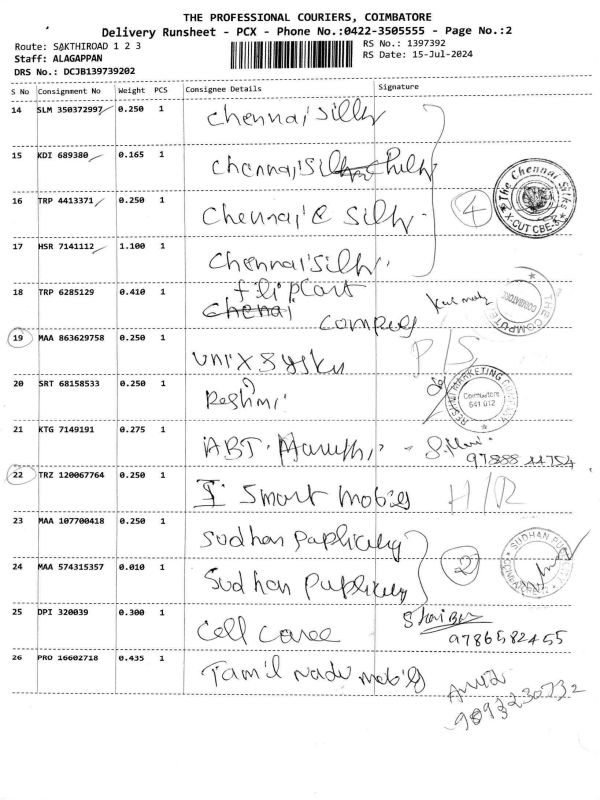 THE PROFESSIONAL COURIERS, COIMBATORE
Delivery Runsheet - PCX - Phone No.:0422-3505555 - Page No.:2
Route: SAKTHIROAD 1 2 3
RS No.: 1397392
Staff: ALAGAPPAN
RS Date: 15-Jul-2024
DRS No.: DCJB139739202
S No Consignment No Weight PCS Consignee Details Signature
14 SLM 350372997 0.250 1 Chennai Silk
15 KDI 689380 0.165 1 Chennai
16 TRP 4413371 0.250 1 Chennai Silk 4
The Chennai Silks
X-CUT CBE-
17 HSR 7141112 1.100 1 Chennai Silk
18 TRP 6285129 0.410 1 flipcart
Chenai
THE COMPUTER
COIMBATORE
19 MAA 863629758 0.250 1 Unix P/S
20 SRT 68158533 0.250 1 Reshmi
RESHMI MARKETING COMPANY
Coimbatore
641 012
21 KTG 7149191 0.275 1 ABT Maruthi
97888 44754
22 TRZ 120067764 0.250 1 I Smart mobiles H/R
23 MAA 107700418 0.250 1 Sudhan
24 MAA 574315357 0.010 1 Sudhan 2
SUDHAN
25 DPI 320039 0.300 1 Cell Caree
9786582455
26 PRO 16602718 0.435 1 Tamil nadu
9093230732